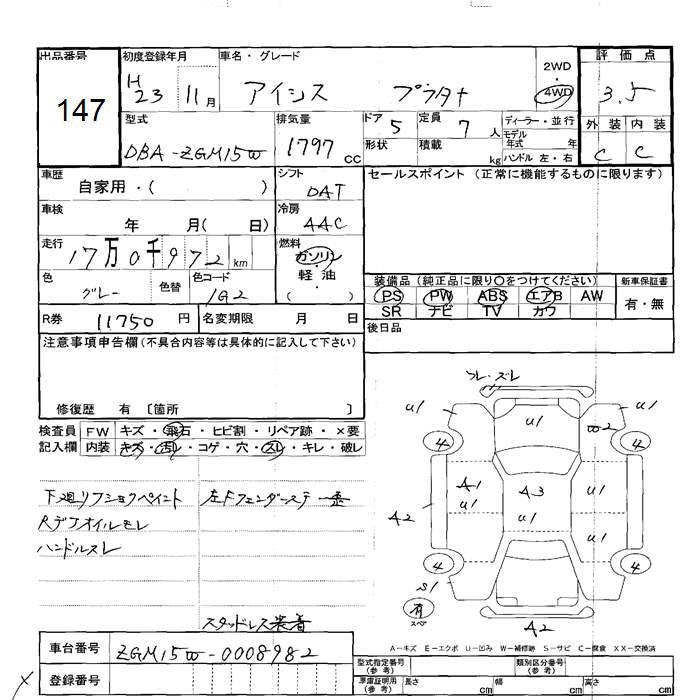 出品番号 初度登録年月 車名・グレード 2WD・4WD 評価点
147 H23 11月 アイシス プラタナ 3.5
型式 排気量 ドア 5 定員 7人 ディーラー・並行 外装 内装
DBA-ZGM15W 1797cc 形状 積載 kg モデル年式 年 ハンドル 左・右 C C
車歴 自家用・( ) シフト DAT セールスポイント (正常に機能するものに限ります)
車検 年 月( 日) 冷房 AAC
走行 17万0千972km 燃料 ガソリン・軽油 ( )
色 グレー 色替 色コード 1G2 装備品 (純正品に限り○をつけてください) 新車保証書
PS PW ABS エアB AW 有・無
SR ナビ TV カワ
R券 11750円 名変期限 月 日 後日品
注意事項申告欄(不具合内容等は具体的に記入して下さい)
修復歴 有 〔箇所 〕
検査員記入欄 FW キズ・飛石・ヒビ割・リペア跡・×要
内装 キズ・汚れ・コゲ・穴・スレ・キレ・破レ
下廻リフショクペイント 左Fフェンダーステー歪
Rデフオイルモレ
ハンドルスレ
スタッドレス装着
フレ・ズレ
U1 U1 U1
W2
4 4
A1 A3 U1
U1
A2 U1 U1
4 4
S1
有 スペア
A2
A-キズ E-エクボ U-凹み W-補修跡 S-サビ C-腐食 XX-交換済
車台番号 ZGM15W-0008982 型式指定番号(参考) 類別区分番号(参考)
登録番号 車庫証明用(参考) 長さ cm 幅 cm 高さ cm